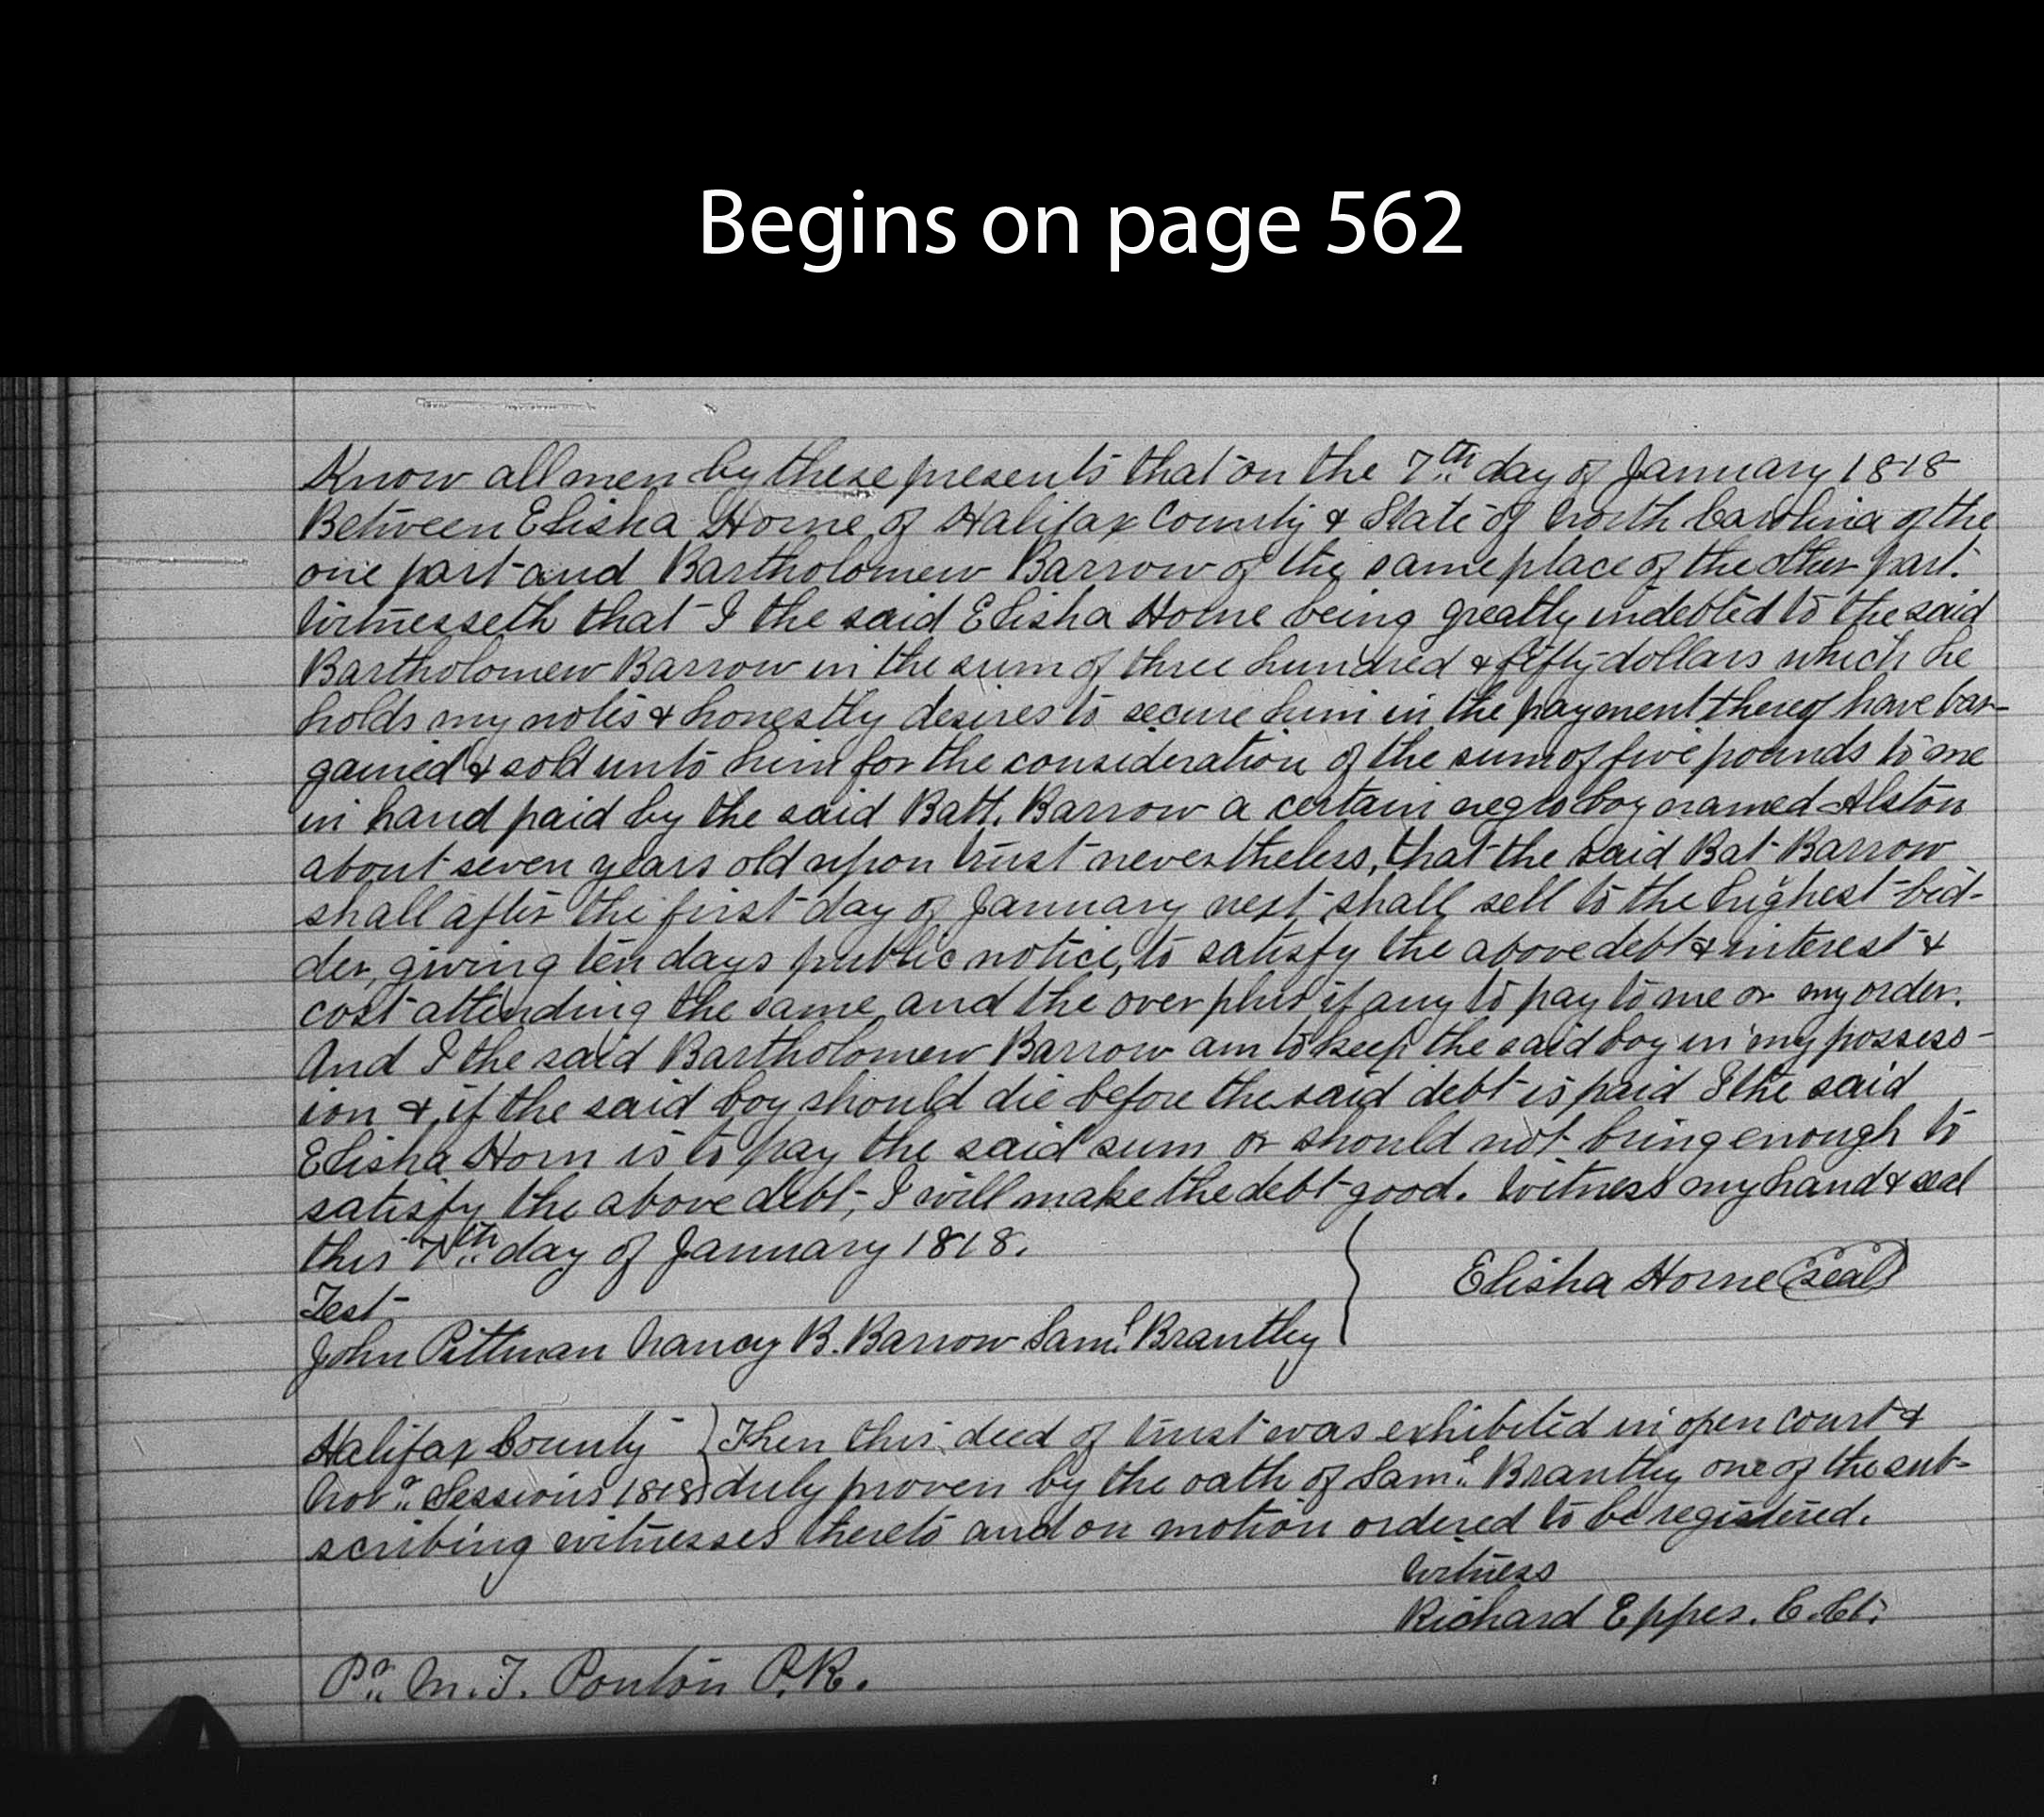 Begins on page 562
Know all men by these presents that on the 7th day of January 1818
Between Elisha Horne of Halifax County & State of North Carolina of the
one part and Bartholomew Barrow of the same place of the other part.
Witnesseth that I the said Elisha Horne being greatly indebted to the said
Bartholomew Barrow in the sum of three hundred & fifty dollars which he
holds my notes & honestly desires to secure him in the payment thereof have bar-
gained & sold unto him for the consideration of the sum of five pounds to me
in hand paid by the said Batt. Barrow a certain negro boy named Alston
about seven years old upon trust nevertheless, that the said Bat Barrow
shall after the first day of January next, shall sell to the highest bid-
der, giving ten days public notice, to satisfy the above debt & interest &
cost attending the same and the over plus if any to pay to me or my order.
And I the said Bartholomew Barrow am to keep the said boy in my possess-
ion & if the said boy should die before the said debt is paid I the said
Elisha Horn is to pay the said sum or should not bring enough to
satisfy the above debt, I will make the debt good. Witness my hand & seal
this 7th day of January 1818.
Elisha Horne (Seal)
Test
John Pittman Nancy B. Barrow Saml Brantley
Halifax County } Then this deed of trust was exhibited in open court &
Novr Sessions 1818 } duly proven by the oath of Saml Brantley one of the sub-
scribing witnesses thereto and on motion ordered to be registered.
Witness
Richard Eppes. C. Ct.
Pr M. T. Ponton P.R.